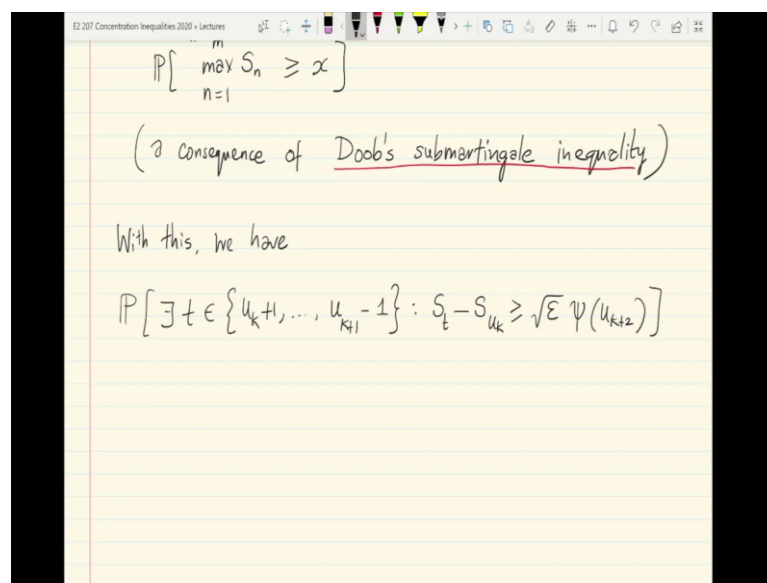 E2 207 Concentration Inequalities 2020 » Lectures
m
ℙ[ max Sₙ ≥ x ]
n=1
(a consequence of Doob's submartingale inequality)
With this, we have
ℙ[∃ t ∈ {u_k+1, ..., u_{k+1}-1} : S_t - S_{u_k} ≥ √ε ψ(u_{k+2})]